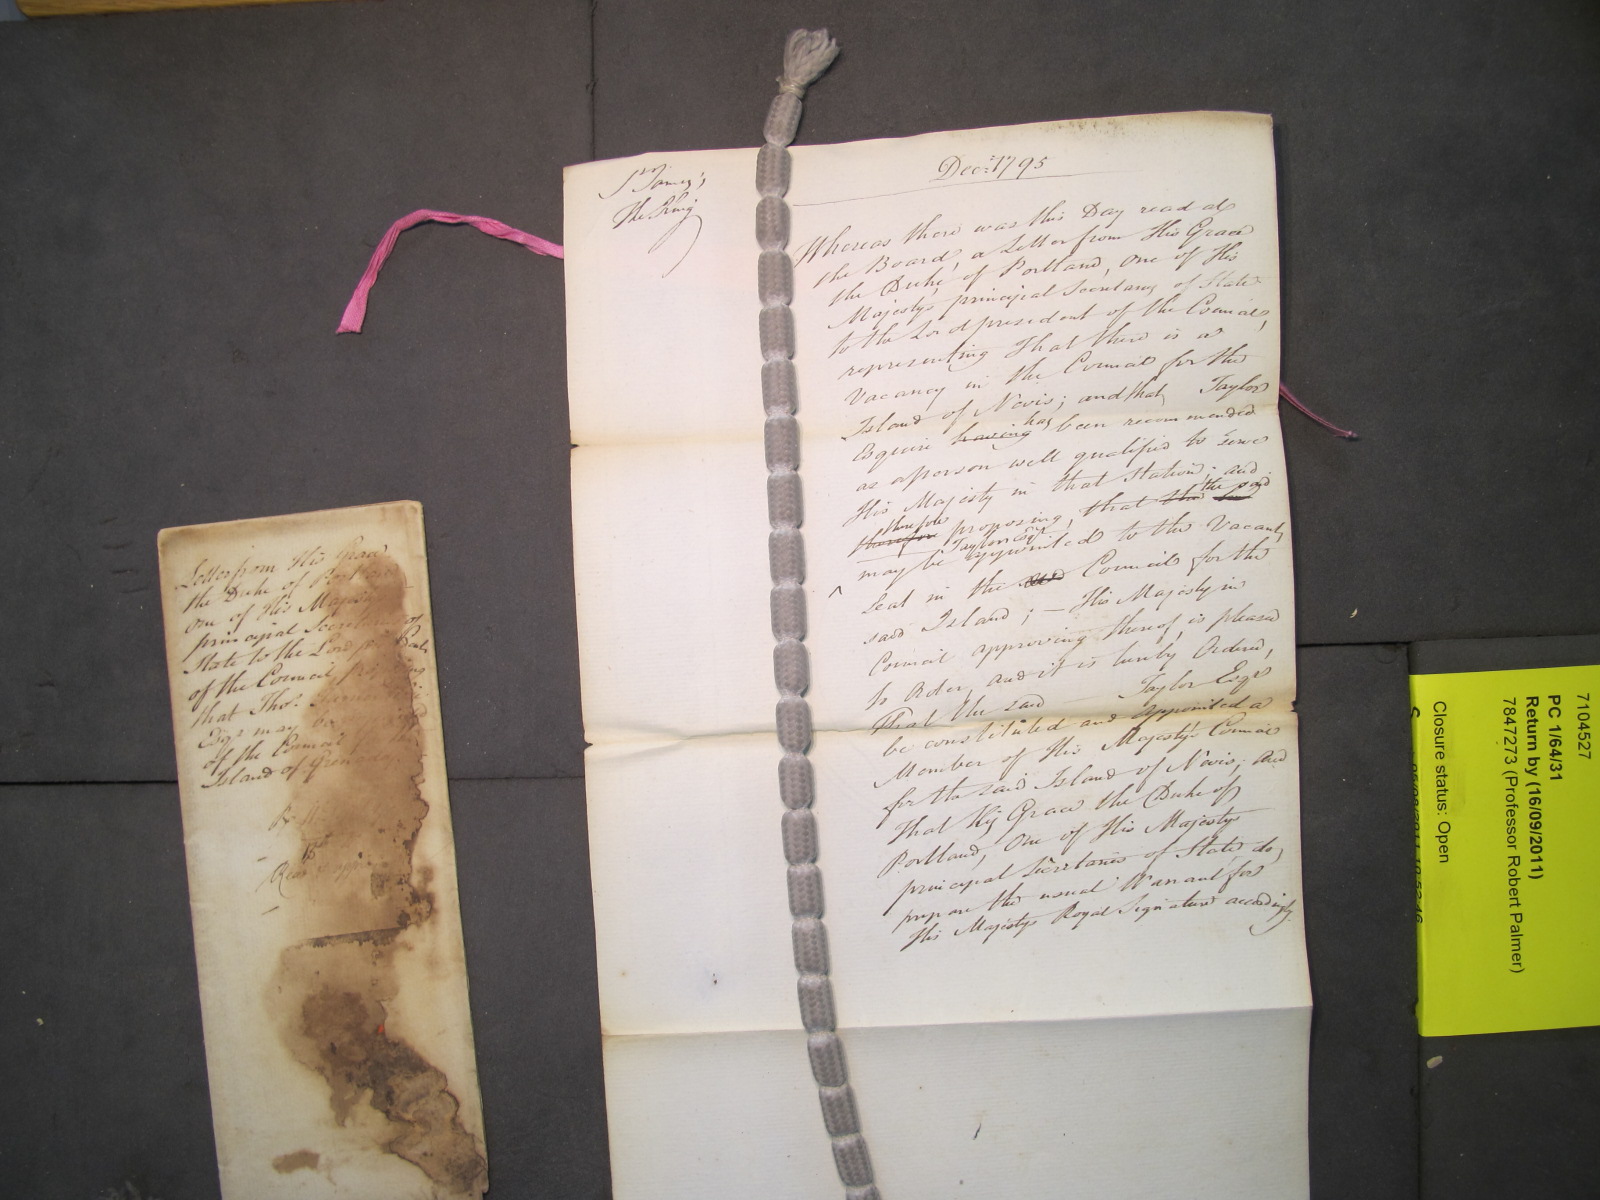 St James's
The King
Decr. 1795
Whereas there was this Day read at
the Board, a Letter from His Grace
the Duke of Portland, One of His
Majesty's principal Secretarys of State
to the Lord president of the Council,
representing That there is a
Vacancy in the Council for the
Island of Nevis; and that Taylor
Esquire having has been recommended
as a person well qualified to serve
His Majesty in that Station; and
therefore therefore proposing, that the said
may be Taylor Esqr appointed to the Vacant
Seat in the Council for the
said Island; — His Majesty in
Council approving thereof, is pleased
to Order, and it is hereby Ordered,
That the said Taylor Esqr
be constituted and appointed a
Member of His Majesty's Council
for the said Island of Nevis; And
That His Grace the Duke of
Portland, One of His Majesty's
principal Secretaries of State, do,
prepare the usual Warrant for
His Majesty's Royal Signature accordingly.
Letter from His Grace
the Duke of Portland
one of His Majesty's
principal Secretarys of
State to the Lord
of the Council
that Thos.
Esqr may be
of the Council
Island of Grenada
7104527
PC 1/64/31
Return by (16/09/2011)
7847273 (Professor Robert Palmer)
Closure status: Open